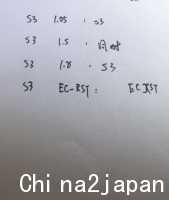 S3 1.05 . S3
S3 1.5 . 同时
S3 1.8 . S3
S3 EC-RST : EC RST
China2japan